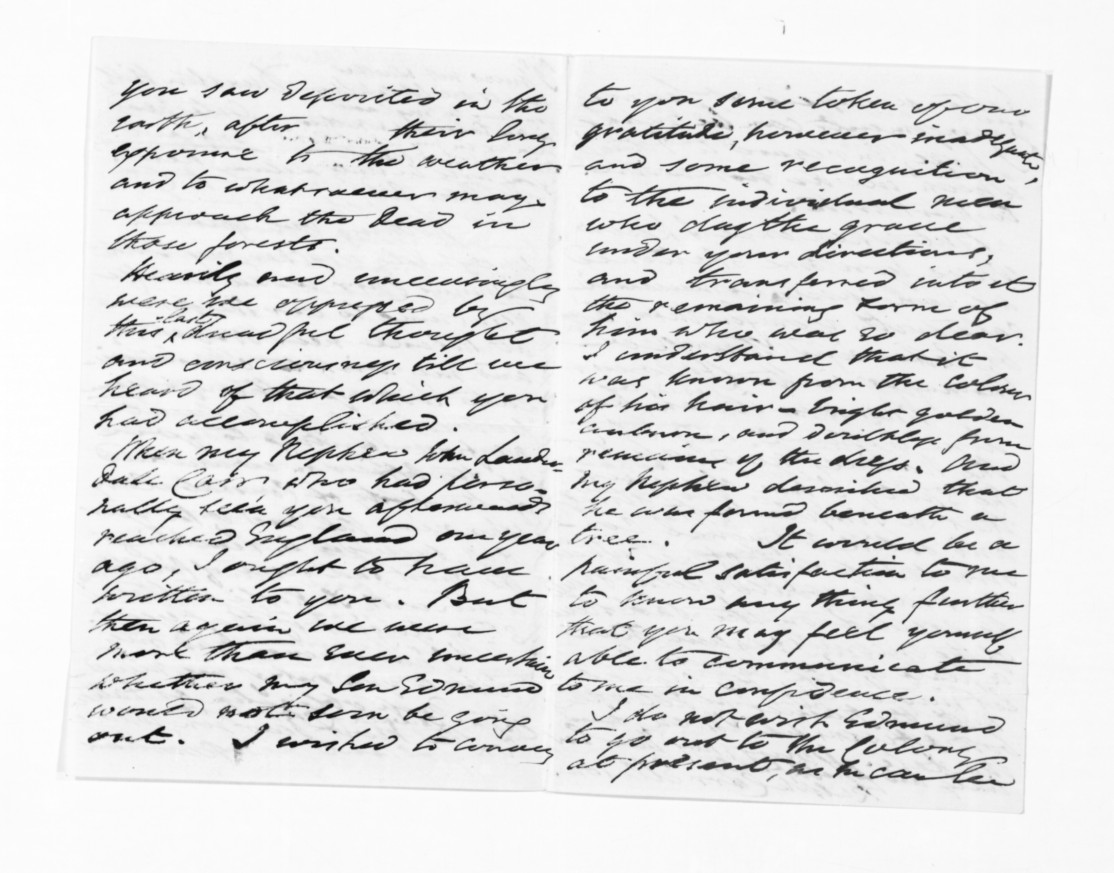 you saw deposited in the
earth, after their long
exposure to the weather
and to whatsoever may
approach the Dead in
those forests.
Heavily and unceasingly
were we oppressed by
this last dreadful thought
and consciousness till we
heard of that which you
had accomplished.
When my Nephew John Lauder-
dale Carr who had perso-
nally seen you afterwards
reached England one year
ago, I ought to have
written to you. But
then again we were
more than ever uncertain
whether my Son Edmund
would not soon be going
out. I wished to convey
to you some token of our
gratitude, however inadequate,
and some recognition
to the individual men
who dug the grave
under your directions,
and transferred into it
the remaining Form of
him who was so dear.
I understand that it
was known from the colour
of his hair - bright golden
auburn, and doubtless from
remains of the dress. And
my Nephew described that
he was found beneath a
tree. It would be a
painful satisfaction to me
to know any thing further
that you may feel yourself
able to communicate
to me in confidence.
I do not wish Edmund
to go out to the Colony
at present, as he can be